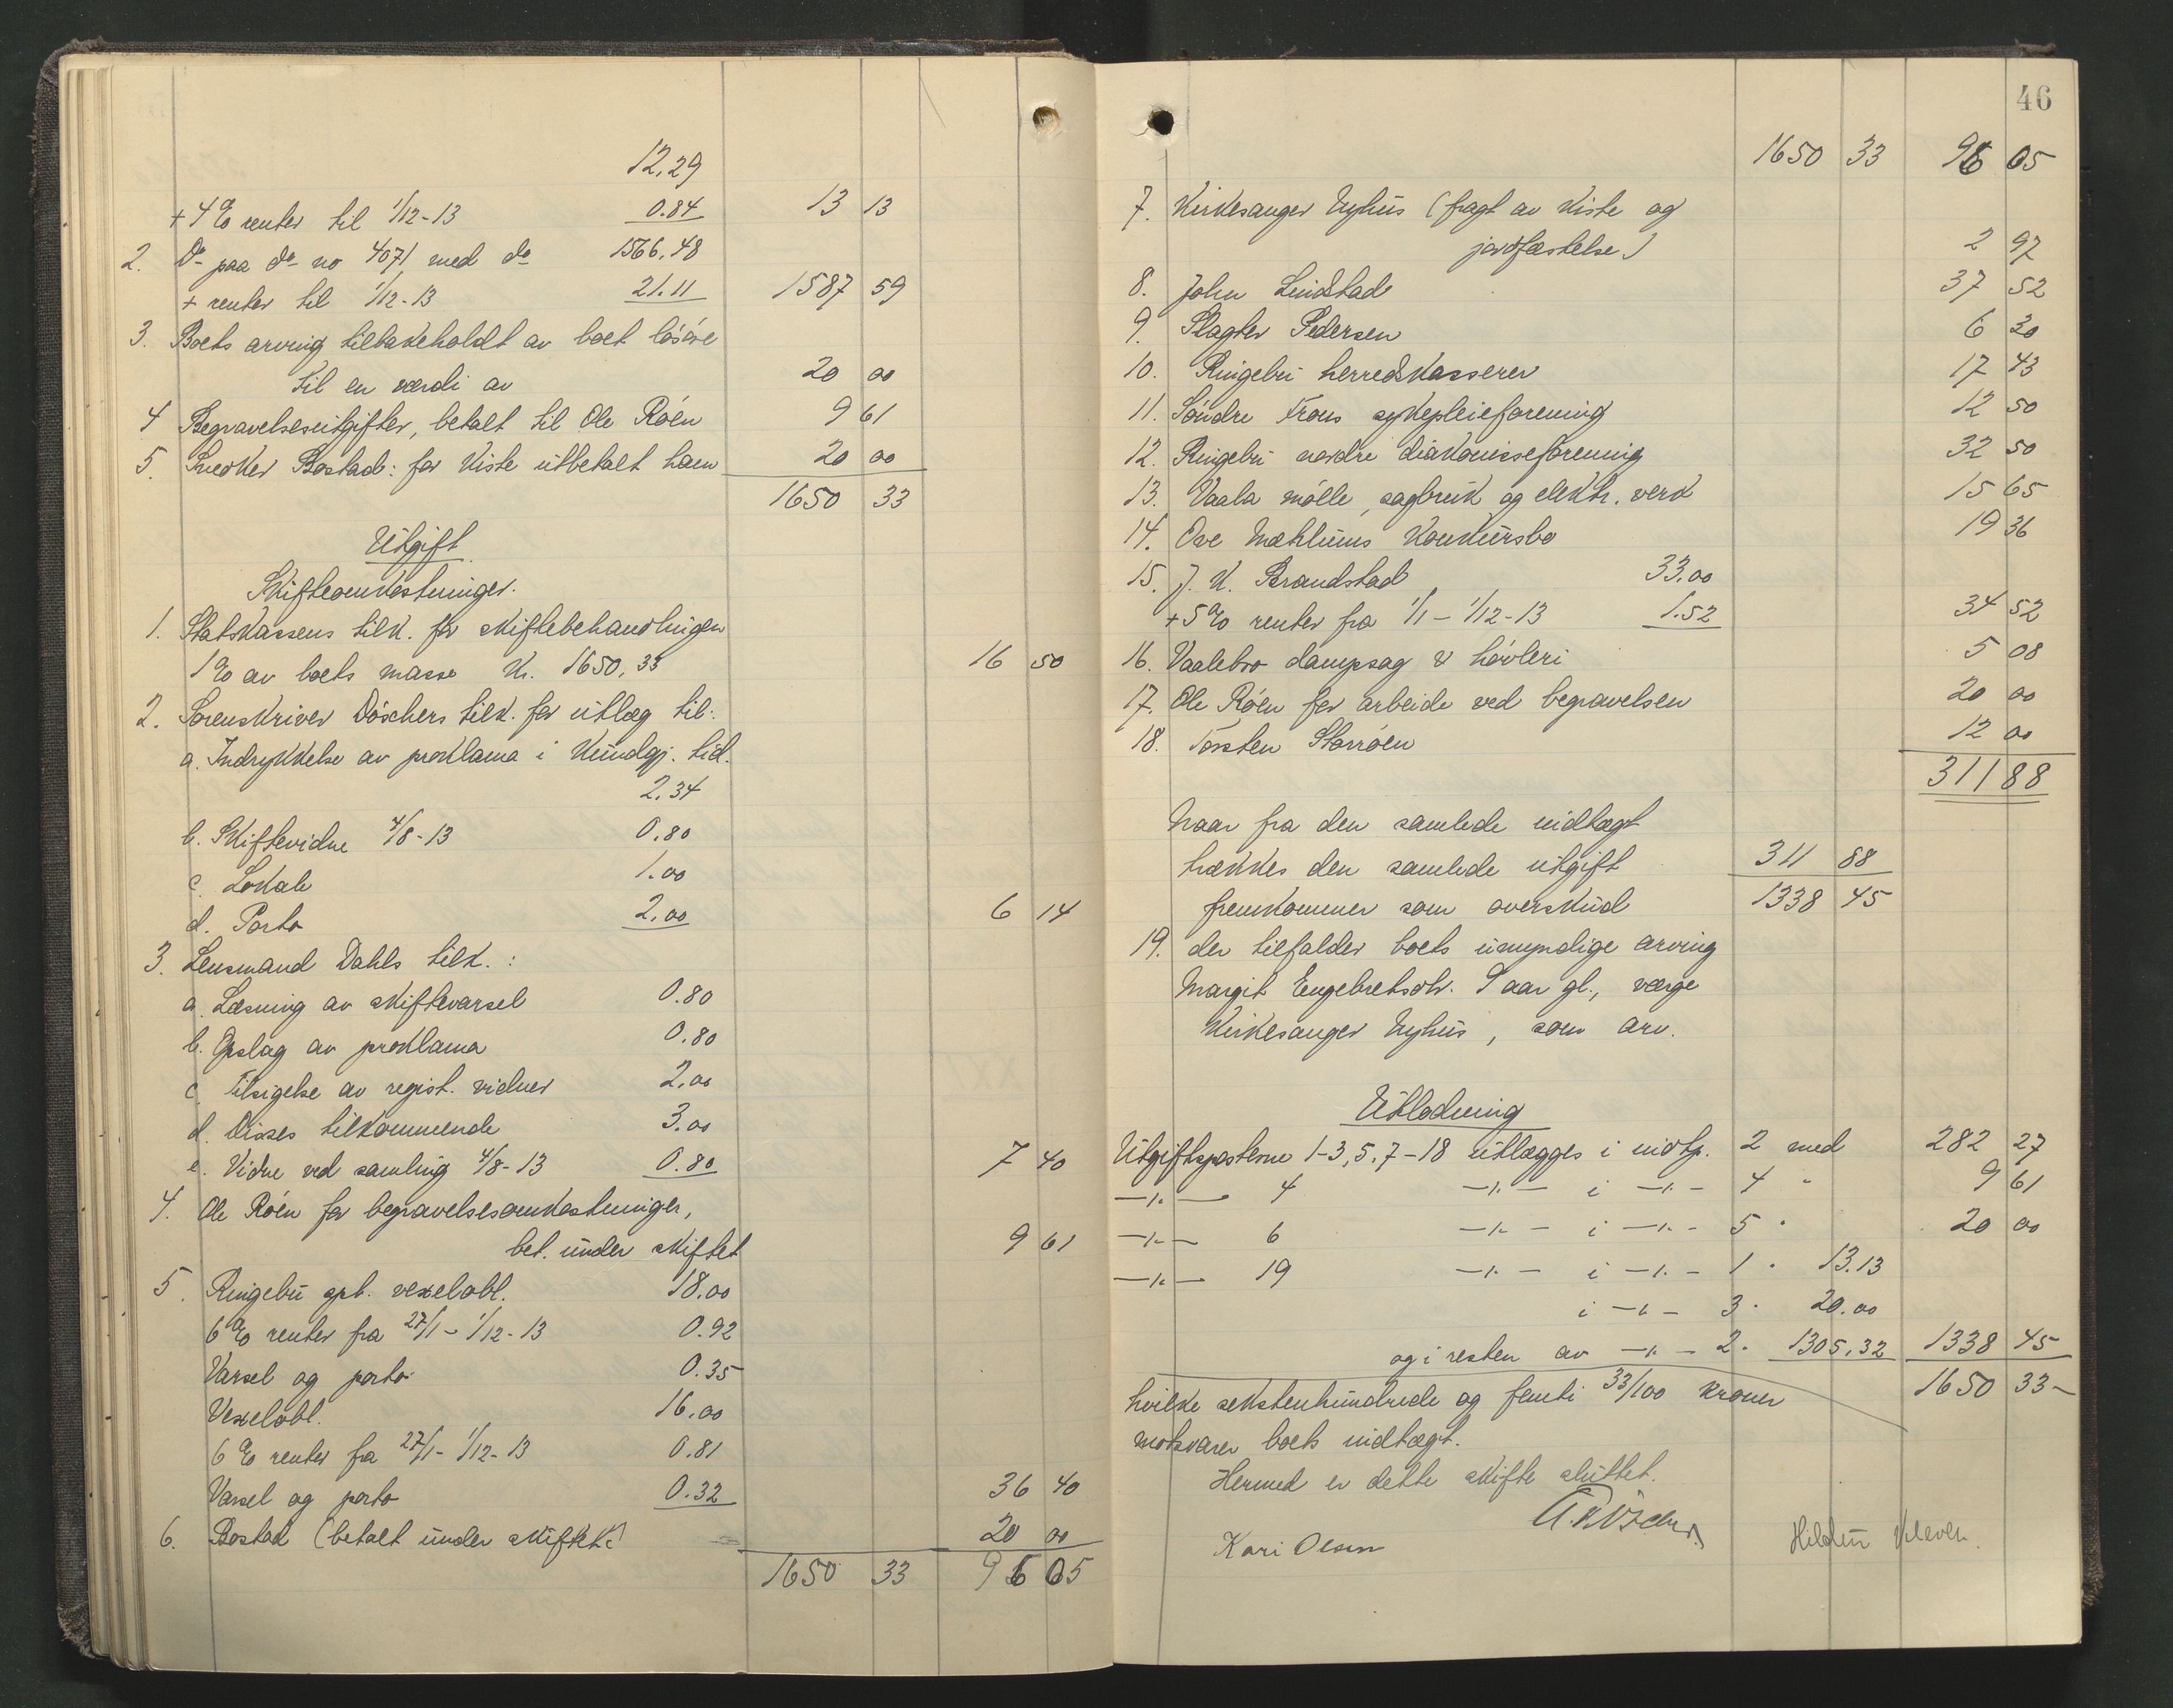 12,29
+ 4 % renter til 1/12-13 0.84 13 13
2. Do paa do no 4071 med do 1566,48
+ renter til 1/12-13 21.11 1587 59
3. Boets arving tilbakeholdt av boet løsøre
til en værdi av 20 00
4 Begravelsesutgifter, betalt til Ole Röen 9 61
5. Snedker Bostad: for kiste utbetalt ham 20 00
1650 33
Utgift
Skifteomkostninger.
1. Statskassens tilk. for skiftebehandlingen
1 % av boets masse kr. 1650,33 16 50
2. Sorenskriver Döschers tilk. for utlæg til:
a. Indrykkelse av proklama i Kundgj. tid.
2.34
b. Skiftevidne 4/8-13 0.80
c. Lokale 1.00
d. Porto 2.00 6 14
3. Lensmand Dahls tilk.:
a. Læsning av skiftevarsel 0.80
b. Opslag av proklama 0.80
c. Tilsigelse av regist. vidner 2.00
d. Disses tilkommende 3.00
e. Vidne ved samling 4/8-13 0.80 7 40
4. Ole Röen for begravelsesomkostninger,
bet. under skiftet 9 61
5. Ringebu spb. vexelobl. 18.00
6 % renter fra 27/1-1/12-13 0.92
Varsel og porto 0.35
Vexelobl. 16.00
6 % renter fra 27/1-1/12-13 0.81
Varsel og porto 0.32 36 40
6. Bostad (betalt under skiftet) 20 00
1650 33 96 05
46
1650 33 96 05
7. Kirkesanger Nyhus (fragt av kiste og
jordfæstelse) 2 97
8. John Lindstad 37 52
9. Slagter Pedersen 6 30
10. Ringebu herredskasserer 17 43
11. Söndre Frons sykepleieforening 12 50
12. Ringebu nordre diakonisseforening 32 50
13. Vaala mölle, sagbruk og elektr. verk 15 65
14. Ove Mæhlums konkursbo 19 36
15. J. K. Brandstad 33.00
+ 5 % renter fra 1/1 - 1/12-13 1.52 34 52
16. Vaalebro dampsag & hövleri 5 08
17. Ole Röen for arbeide ved begravelsen 20 00
18. Torsten Storröen 12 00
311 88
Naar fra den samlede indtægt
trækkes den samlede utgift 311 88
fremkommer som overskud 1338 45
19. der tilfalder boets umyndige arving
Margit Engebretsdtr. 9 aar gl., værge
Kirkesanger Nyhus, som arv.
Utlodning
Utgiftsposterne 1-3, 5, 7-18 utlægges i indtp. 2 med 282 27
—"— 4 —"— i —"— 4 " 9 61
—"— 6 —"— i —"— 5 " 20 00
—"— 19 —"— i —"— 1 " 13.13
i —"— 3 " 20.00
og i resten av —"— 2 " 1305,32 1338 45
hvilke sekstenhundrede og femti 33/100 kroner 1650 33
motsvarer boets indtægt.
Hermed er dette skifte sluttet.
Kari Olsen